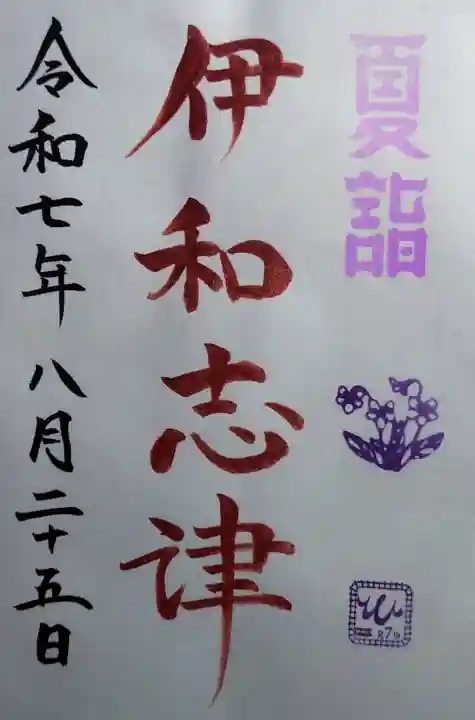 夏詣
伊和志津
令和七年 八月二十五日